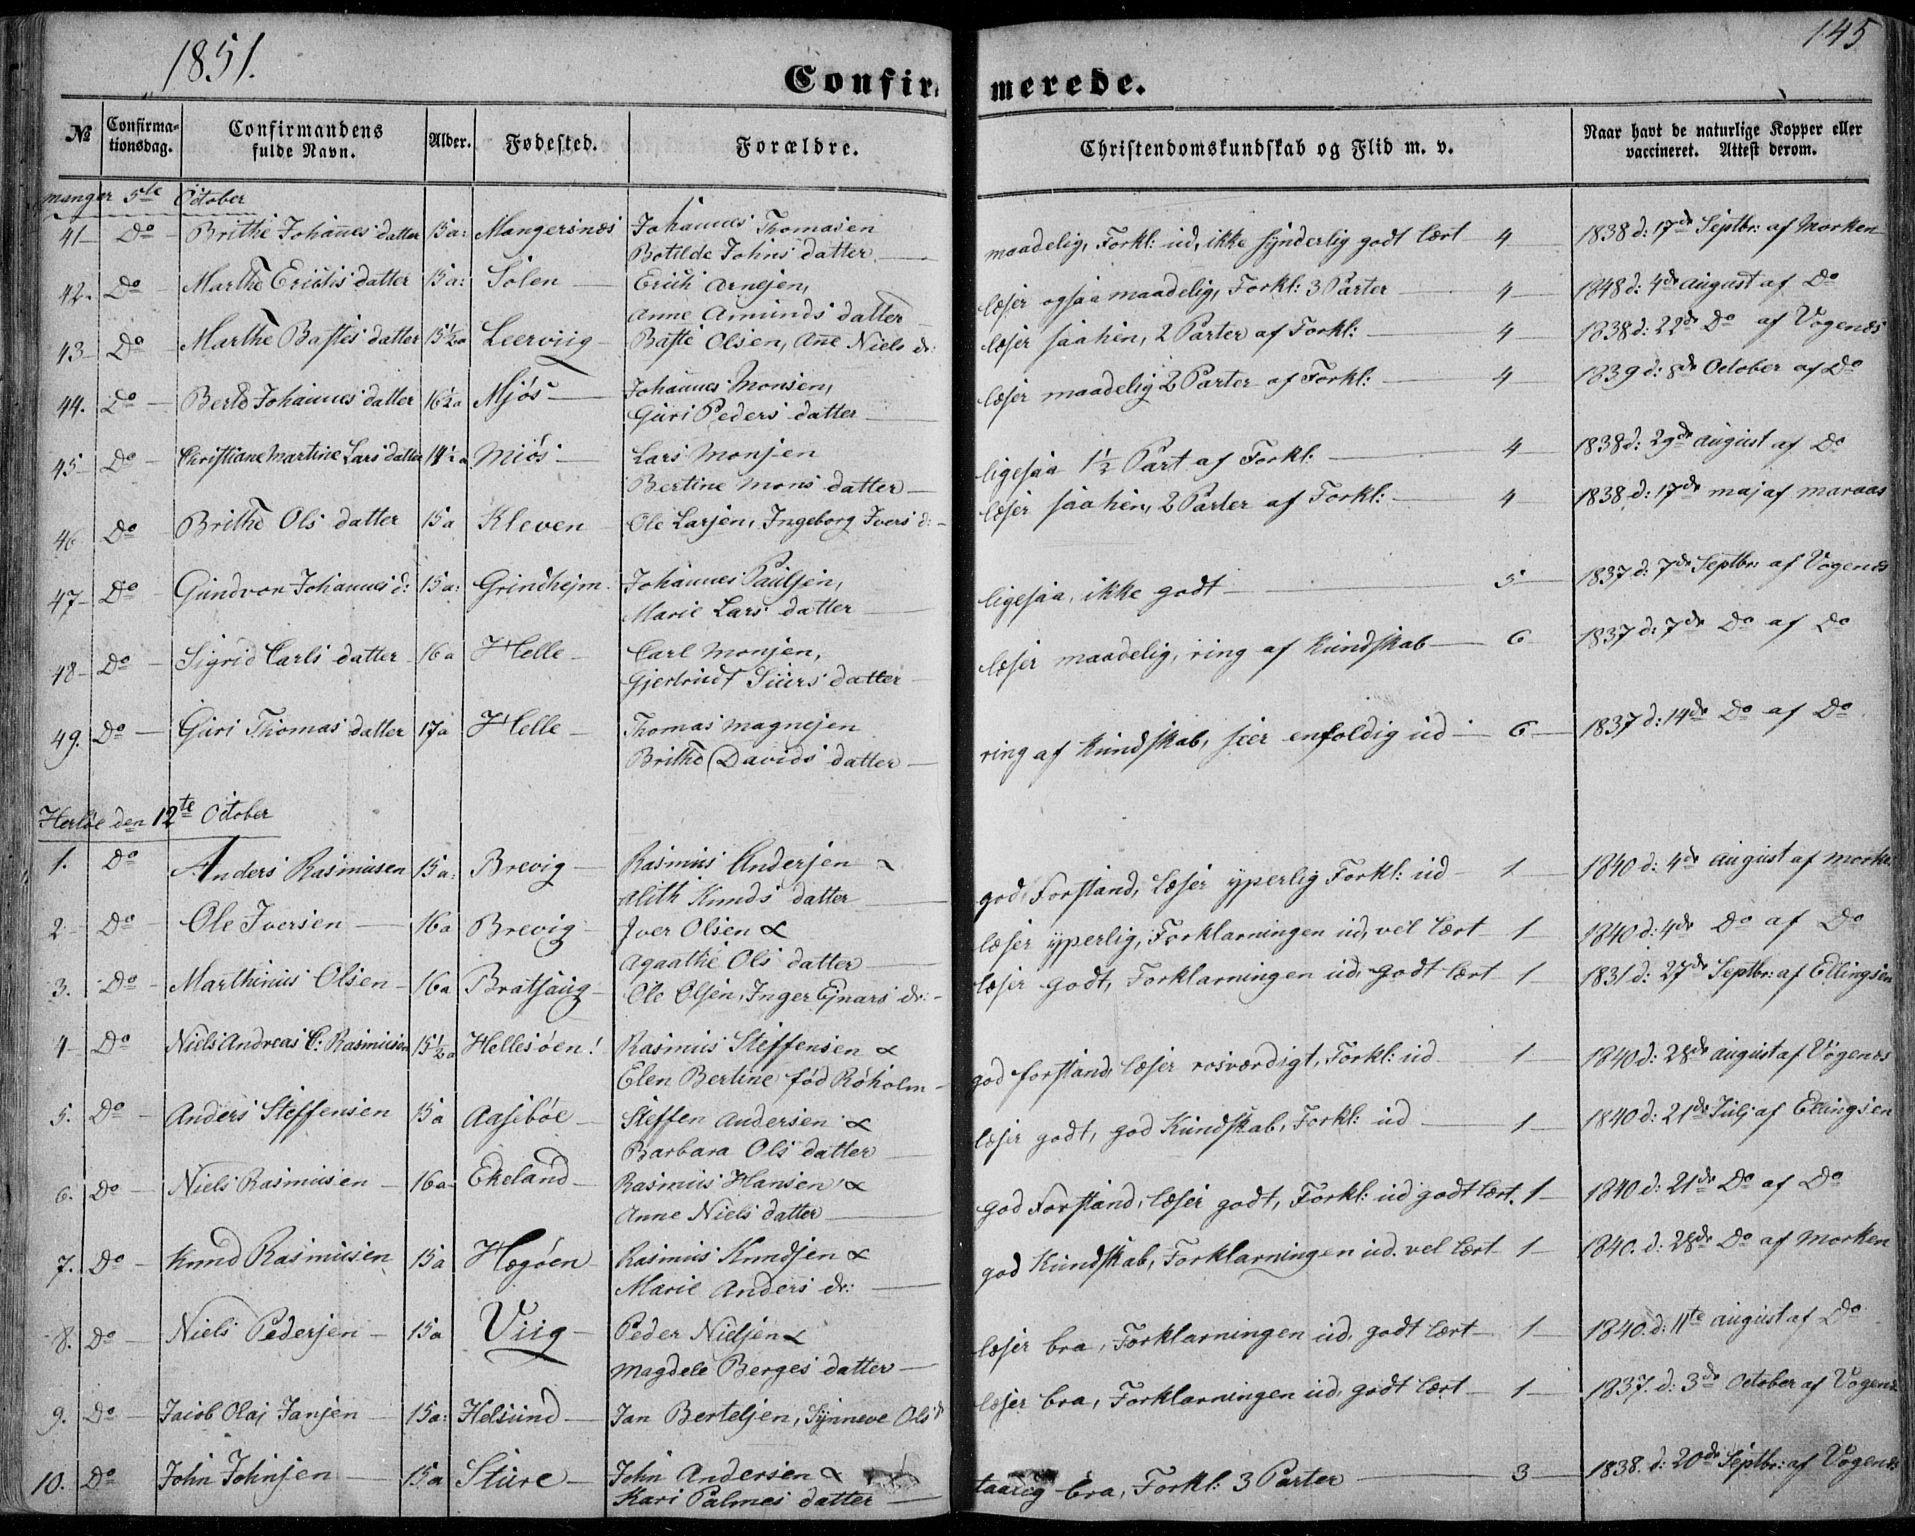 1851.
145
Confirmerede.
№ Confirmationsdag. Confirmandens fulde Navn. Alder. Fødested. Forældre. Christendomskundskab og Flid m. v. Naar havt de naturlige Kopper eller vaccineret. Attest derom.
manger 5te October
41 Do Brithe Johannes datter 15 a: Mangersnæs Johannes Thomasen maadelig, Forkl: ud, ikke synderlig godt lært 4 1838 d: 17de Septbr: af Morken
Botilde Johns datter
42. Do Marthe Erichs datter 15 a: Solen Erich Arnesen, læser ogsaa maadelig, Forkl: 3 Parter 4 1848 d: 4de august af Do
Anne Amunds datter
43 Do Marthe Bastes datter 15½a Leerviig Baste Olsen, Ane Niels dr: læser saahen, 2 Parter af Forkl: 4 1838 d: 22de Do af Vogenes
44. Do Berte Johannes datter 16½a Mjøs Johannes Monsen, læser maadelig 2 Parter af Forkl: 4 1839 d: 8de October af Do
Guri Peders datter
45 Do Christiane Martine Lars datter 14½a Miøs Lars Monsen ligesaa 1½ Part af Forkl: 4 1838 d: 29de august af Do
Bertine Mons datter
46 Do Brithe Ols datter 15 a Kleven Ole Larsen, Ingeborg Ivers d: læser saahen, 2 Parter af Forkl: 4 1838 d: 17de maj af maraas
47 Do Gundvor Johannes d: 15 a: Grindhejm Johannes Paulsen, ligesaa, ikke godt 5 1837 d: 7de Septbr: af Vogenes
Marie Lars datter
48 Do Sigrid Carls datter 16 a Helle Carl Monsen, læser maadelig, ring af Kundskab 6 1837 d: 7de Do af Do
Gjertrudt Siurs datter
49. Do Guri Thomas datter 17 a Helle Thomas Magnesen ring af Kundskab, seer enfoldig ud 6 1837 d: 14de Do af Do
Brithe Davids datter
Herløe den 12te October
1. Do Anders Rasmusen 15 a: Brevig Rasmus Andersen & god Forstand, læser yperlig Forkl: ud 1 1840 d: 4de august af Morken
Alith Knuds datter
2 Do Ole Iversen 16 a Brevig Iver Olsen & læser yperlig, Forklarningen ud, vel lært 1 1840 d: 4de Do af Do
Agaathe Ols datter
3. Do Marthinus Olsen 16 a Bratsaug Ole Olsen, Inger Ejnars dr: læser godt, Forklarningen ud, godt lært 1 1831 d: 27de Septbr: af Ellingsen
4 Do Niels Andreas C: Rasmusen 15½a Hellesøen! Rasmus Steffensen & god forstand, læser rosværdigt, Forkl: ud 1 1840 d: 28de august af Vogenes
Elen Bertine fød Røholm
5. Do Anders Steffensen 15 a Aasebøe Steffen Andersen & læser godt, god Kundskab, Forkl: ud 1 1840 d: 21de Julj af Ellingsen
Barbara Ols datter
6. Do Niels Rasmusen 16 a Ekeland Rasmus Hansen & god Forstand, læser godt, Forkl: ud godt lært. 1 1840 d: 21de Do af Do
Anne Niels datter
7. Do Knud Rasmusen 15 a Hægøen Rasmus Knudsen & god Kundskab, Forklarningen ud. vel lært 1 1840. d: 28de Do af Morken
Marie Anders dr:
8. Do Niels Pedersen 15 a Viig Peder Nielsen & læser bra, Forklarningen ud, godt lært 1 1840. d: 11te august af Do
Magdele Berges datter
9. Do Jacob Olaj Jansen 15 a: Helsund Jan Bertelsen, Synneve Ols d: læser bra, Forklarningen ud, godt lært 1 1837. d: 3de October af Vogenes
10. Do John Johnsen 15 a Sture John Andersen & bra, Forkl: 3 Parter 3 1838. d: 20de Septbr: af Vogenes
Kari Palmes datter